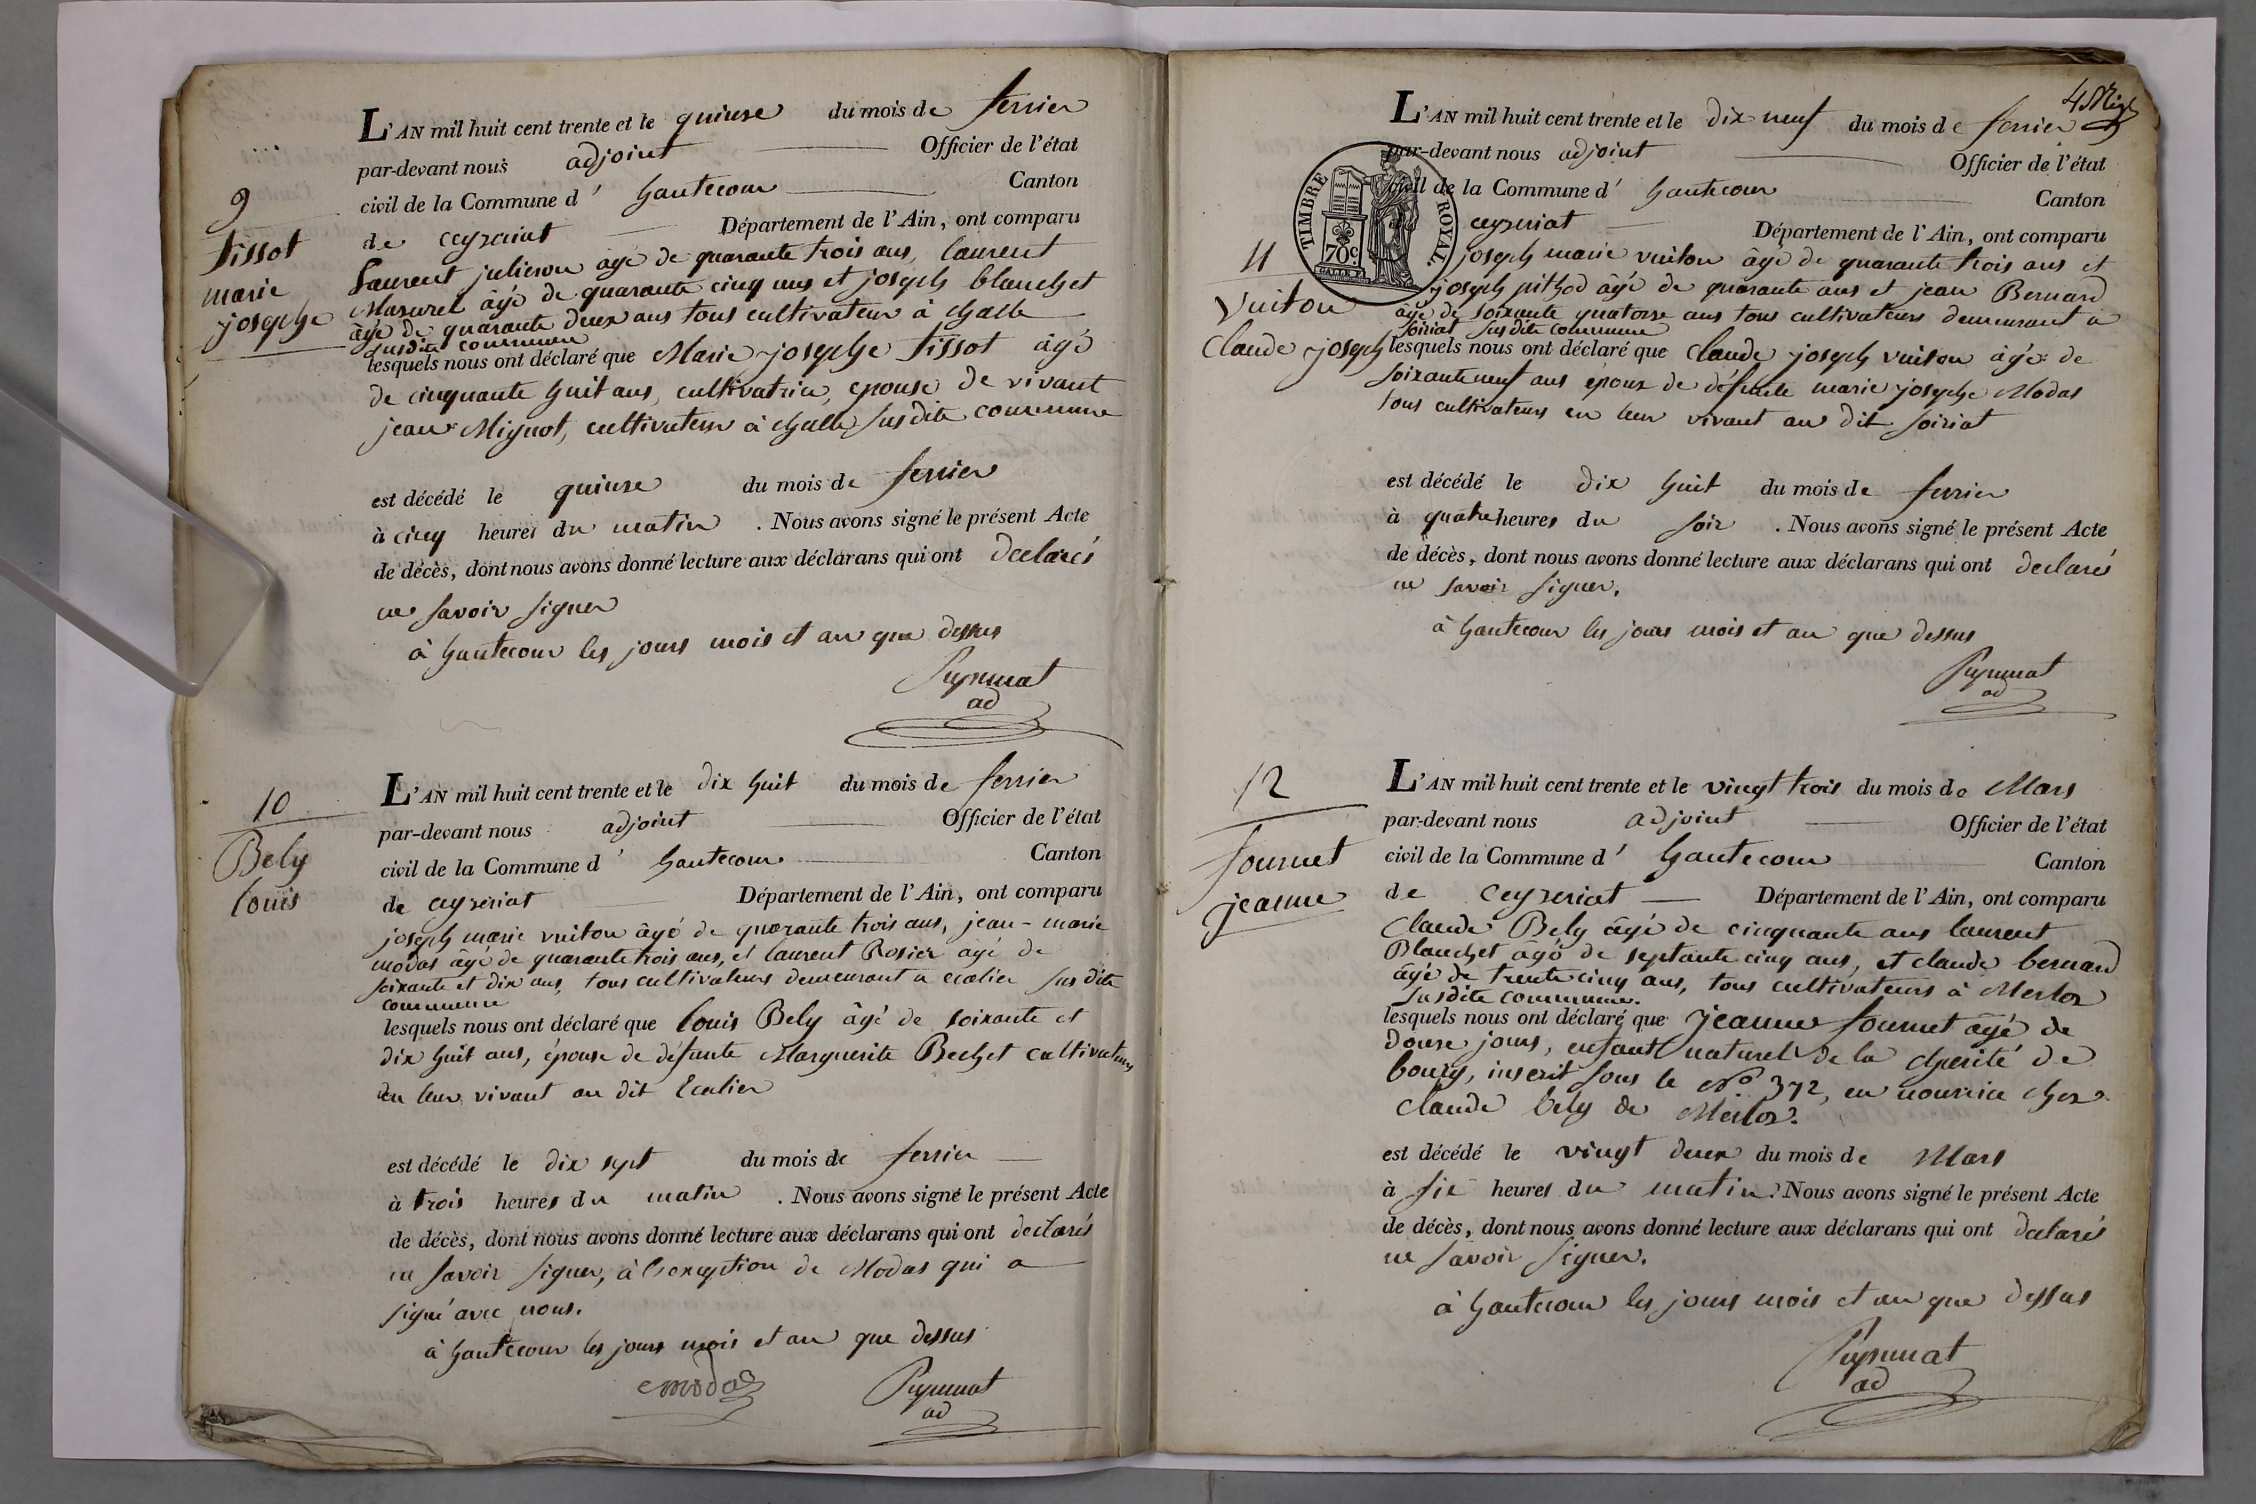 9
tissot
marie
josephe
L'AN mil huit cent trente et le quinse du mois de fevrier
par-devant nous adjoint Officier de l'état
civil de la Commune d' hautecour Canton
de ceyzeriat Département de l'Ain, ont comparu
Laurent julieron âgé de quarante trois ans, laurent
Mazurel âgé de quarante cinq ans et joseph blanchet
âgé de quarante deux ans tous cultivateur à challe
susdite commune
lesquels nous ont déclaré que Marie josephe tissot âgé
de cinquante huit ans, cultivatrice, epouse de vivant
jean Mignot, cultivateur à challe susdite commune
est décédé le quinse du mois de fevrier
à cinq heures du matin . Nous avons signé le présent Acte
de décès, dont nous avons donné lecture aux déclarans qui ont declarés
ne savoir signer
à hautecour les jours mois et an que dessus
ad
10
Bely
louis
L'AN mil huit cent trente et le dix huit du mois de fevrier
par-devant nous adjoint Officier de l'état
civil de la Commune d' hautecour Canton
de ceyzeriat Département de l'Ain, ont comparu
joseph marie vuiton âgé de quarante trois ans, jean-marie
modas âgé de quarante trois ans, et laurent Rosier âgé de
soixante et dix ans, tous cultivateurs demeurant a ecolier susdite
commune
lesquels nous ont déclaré que louis Bely âgé de soixante et
dix huit ans, épouse de défunte Marguerite Bechet cultivateurs
en leur vivant au dit Ecolier
est décédé le dix sept du mois de fevrier
à trois heures du matin . Nous avons signé le présent Acte
de décès, dont nous avons donné lecture aux déclarans qui ont declarés
ne savoir signer, à l'exception de Modas qui a
signé avec nous.
à hautecour les jours mois et an que dessus
modas
ad
4
TIMBRE ROYAL.
70c.
11
Vuiton
Claude joseph
L'AN mil huit cent trente et le dix neuf du mois de fevrier
par-devant nous adjoint Officier de l'état
civil de la Commune d' hautecour Canton
ceyzeriat Département de l'Ain, ont comparu
joseph marie vuiton âgé de quarante trois ans et
joseph pithod âgé de quarante ans et jean Bernard
âgé de soixante quatorse ans tous cultivateurs demeurant a
soiriat susdite commune
lesquels nous ont déclaré que Claude joseph vuiton âgé de
soixante neuf ans époux de défunte marie josephe Modas
tous cultivateurs en leur vivant au dit soiriat
est décédé le dix huit du mois de fevrier
à quatre heures du soir . Nous avons signé le présent Acte
de décès, dont nous avons donné lecture aux déclarans qui ont declarés
ne savoir signer.
à hautecour les jours mois et an que dessus
ad
12
fournet
jeanne
L'AN mil huit cent trente et le vingt trois du mois de Mars
par-devant nous adjoint Officier de l'état
civil de la Commune d' hautecour Canton
de ceyzeriat Département de l'Ain, ont comparu
Claude Bely âgé de cinquante ans laurent
Blanchet âgé de septante cinq ans, et claude bernard
âgé de trente cinq ans, tous cultivateurs à Merloz
susdite commune.
lesquels nous ont déclaré que jeanne fournet âgé de
douse jours, enfant naturel de la cherité de
bourg, inscrit sous le No 372, en nourrice chez
claude bely de Merloz.
est décédé le vingt deux du mois de Mars
à six heures du matin. Nous avons signé le présent Acte
de décès, dont nous avons donné lecture aux déclarans qui ont declarés
ne savoir signer.
à hautecour les jours mois et an que dessus
ad